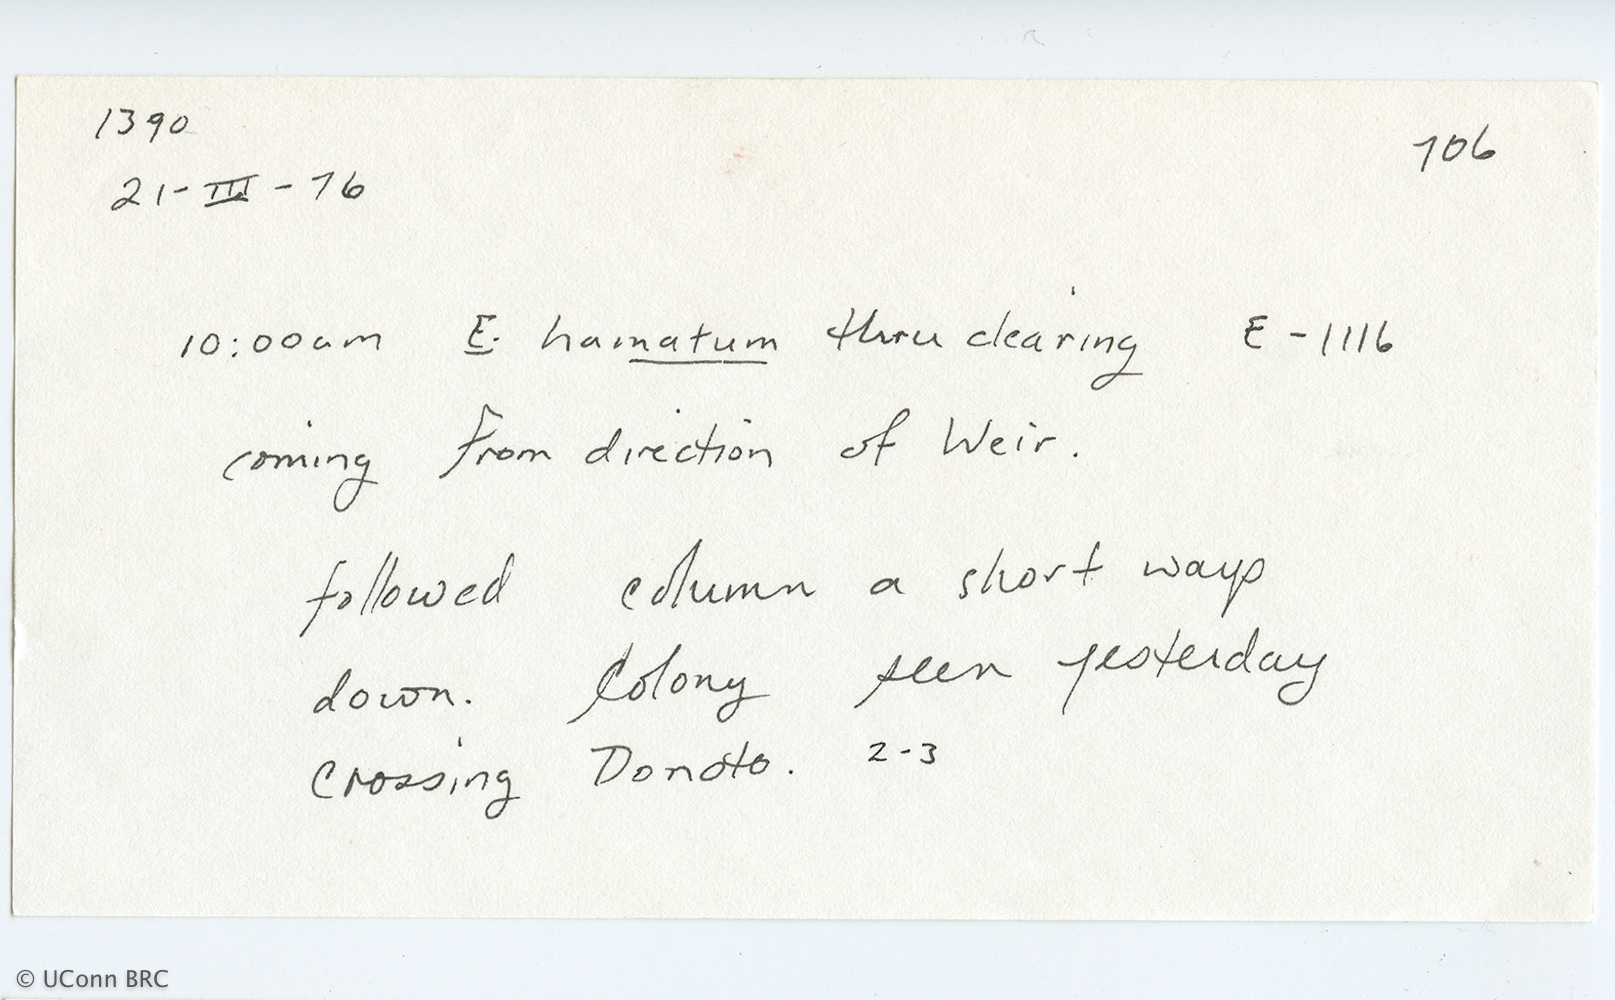 1390
706
21-III-76
10:00am E. hamatum thru clearing E-1116
coming from direction of Weir.
followed column a short ways
down. Colony seen yesterday
crossing Donato. 2-3
© UConn BRC